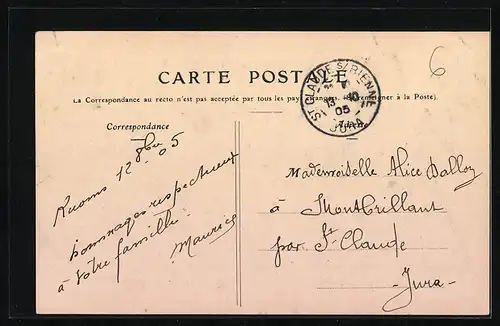 6
CARTE POSTALE
La Correspondance au recto n'est pas acceptée par tous les pays étrangers. (Se renseigner à la Poste).
ST CLAUDE S/BIENNE
13 10
05
JURA
Correspondance
Ruoms 12 8bre 05
hommages respectueux
à votre famille.
Maurice
Mademoiselle Alice Dalloz
à Montbrillant
par St Claude
Jura